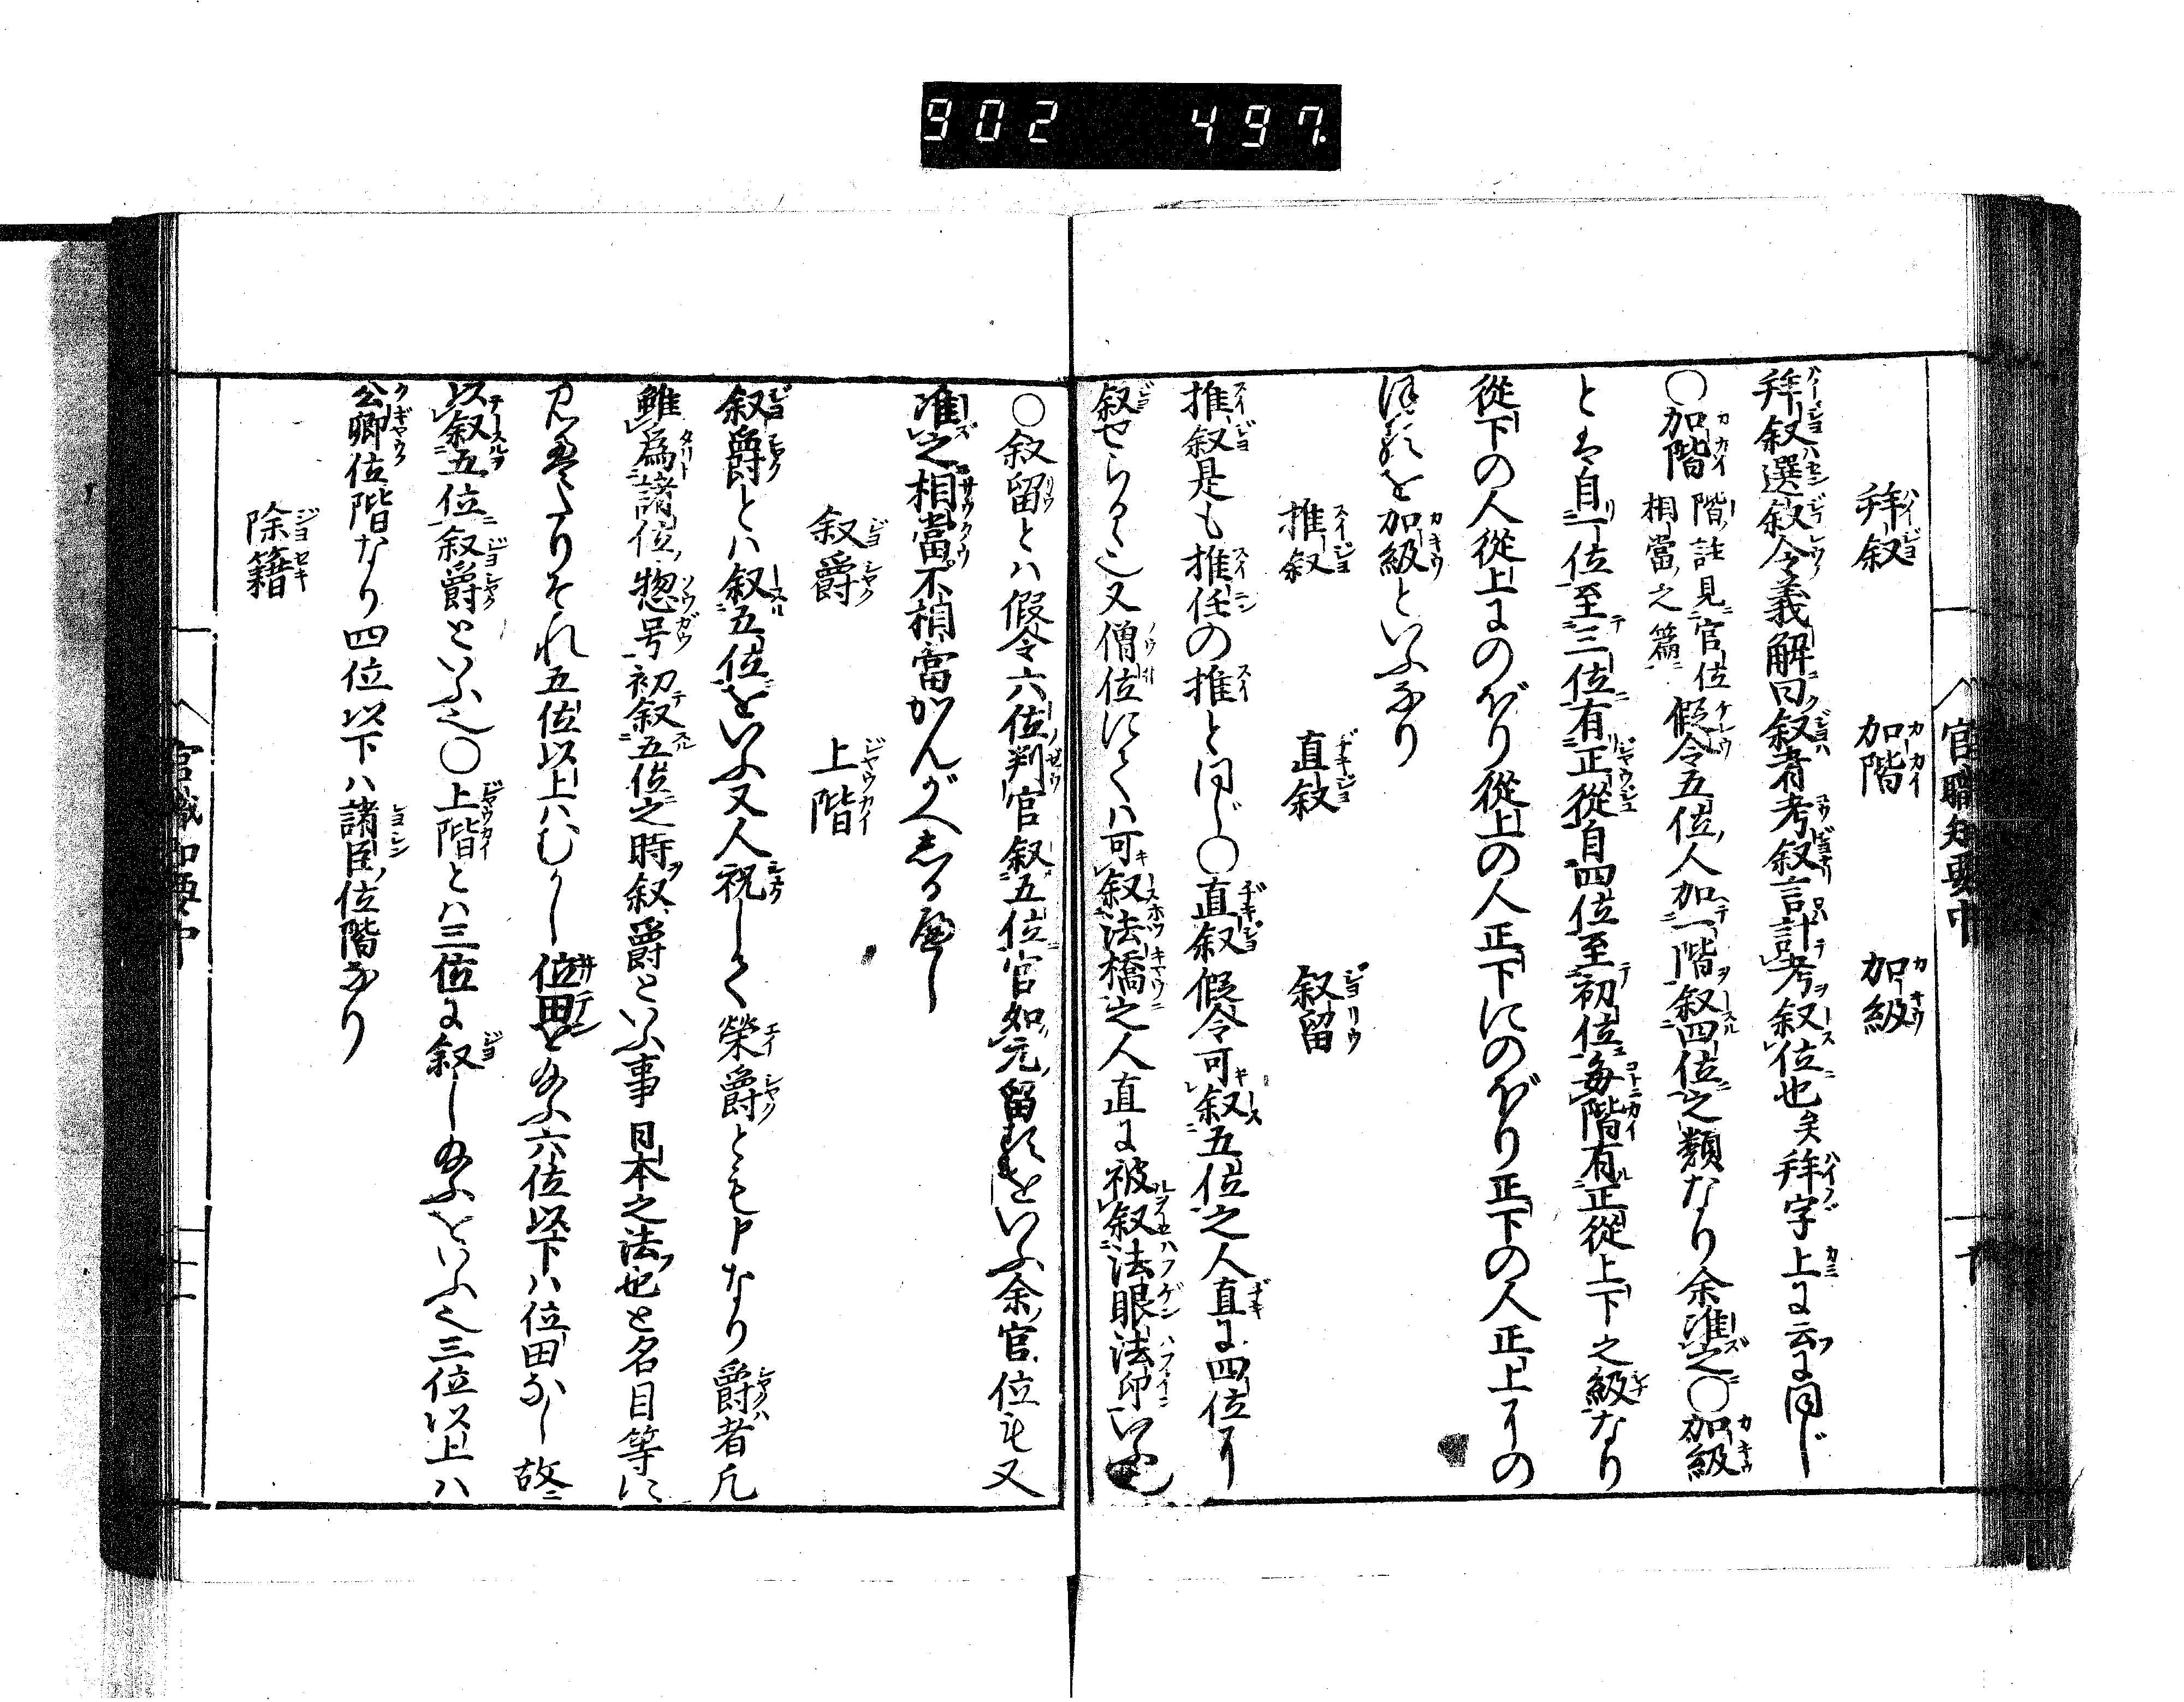 902 497.
官職知要中 十
拜叙 加階 加級
拜叙ハ選叙令義解曰叙者考叙言計考叙位也矣拜字上に云に同じ
○加階 階註見官位相當之篇 假令五位人加一階叙四位之類なり余准之○加級
とは自一位至三位有正從自四位至初位毎階有正從上下之級なり
從下の人從上にのぼり從上の人正下にのぼり正下の人正上にの
ぼるを加級といふなり
推叙 直叙 叙留
推叙是も推任の推と同じ○直叙假令可叙五位之人直に四位に
叙せらるゝ也又僧位にてハ可叙法橋之人直に被叙法眼法印いふ也
○叙留とハ假令六位判官叙五位官如元留るをいふ余官位も又
准之相當不相當かんがへしるべし
叙爵 上階
叙爵とハ叙五位をいふ又人祝して榮爵とも申なり爵者凡
雖為諸位惣号初叙五位之時叙爵といふ事日本之法也と名目等に
見えたりそれ五位以上ハむかし位田を給ふ六位以下ハ位田なし故
以叙五位叙爵といふ也○上階とハ三位に叙し給ふをいふ也三位以上ハ
公卿位階なり四位以下ハ諸臣位階なり
除籍
官職知要中 十一